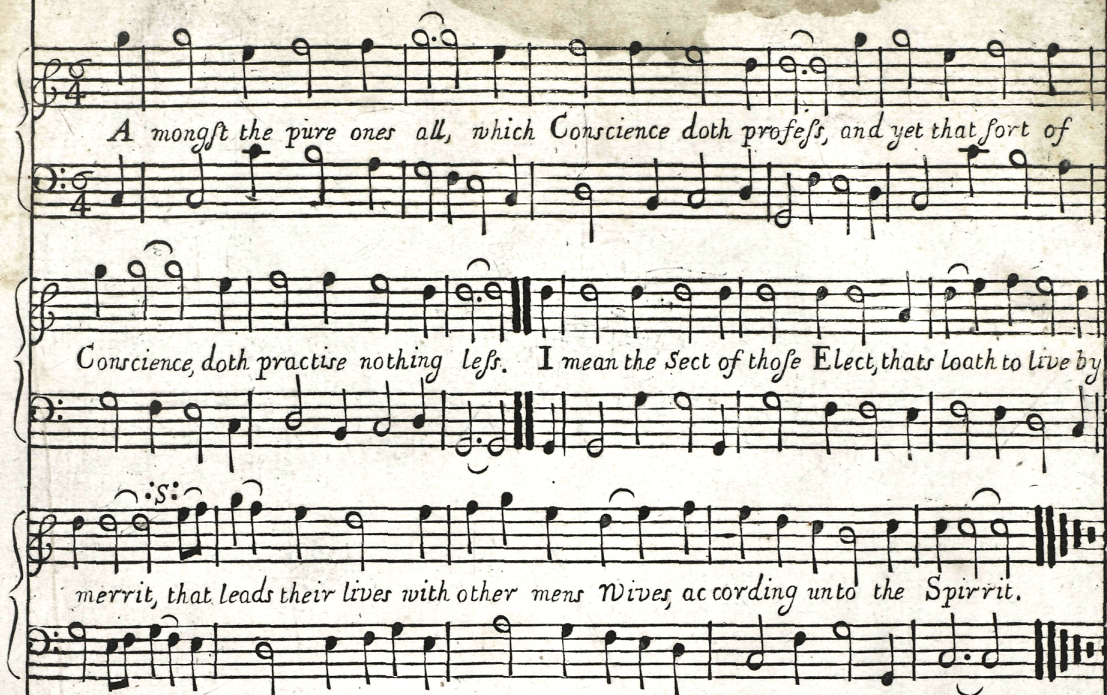 6
4
A mongſt the pure ones all, which Conscience doth profeſs, and yet that ſort of
6
4
Conscience, doth practise nothing leſs. I mean the Sect of thoſe Elect, thats loath to live by
:S:
merrit, that leads their lives with other mens Wives, ac cording unto the Spirrit.